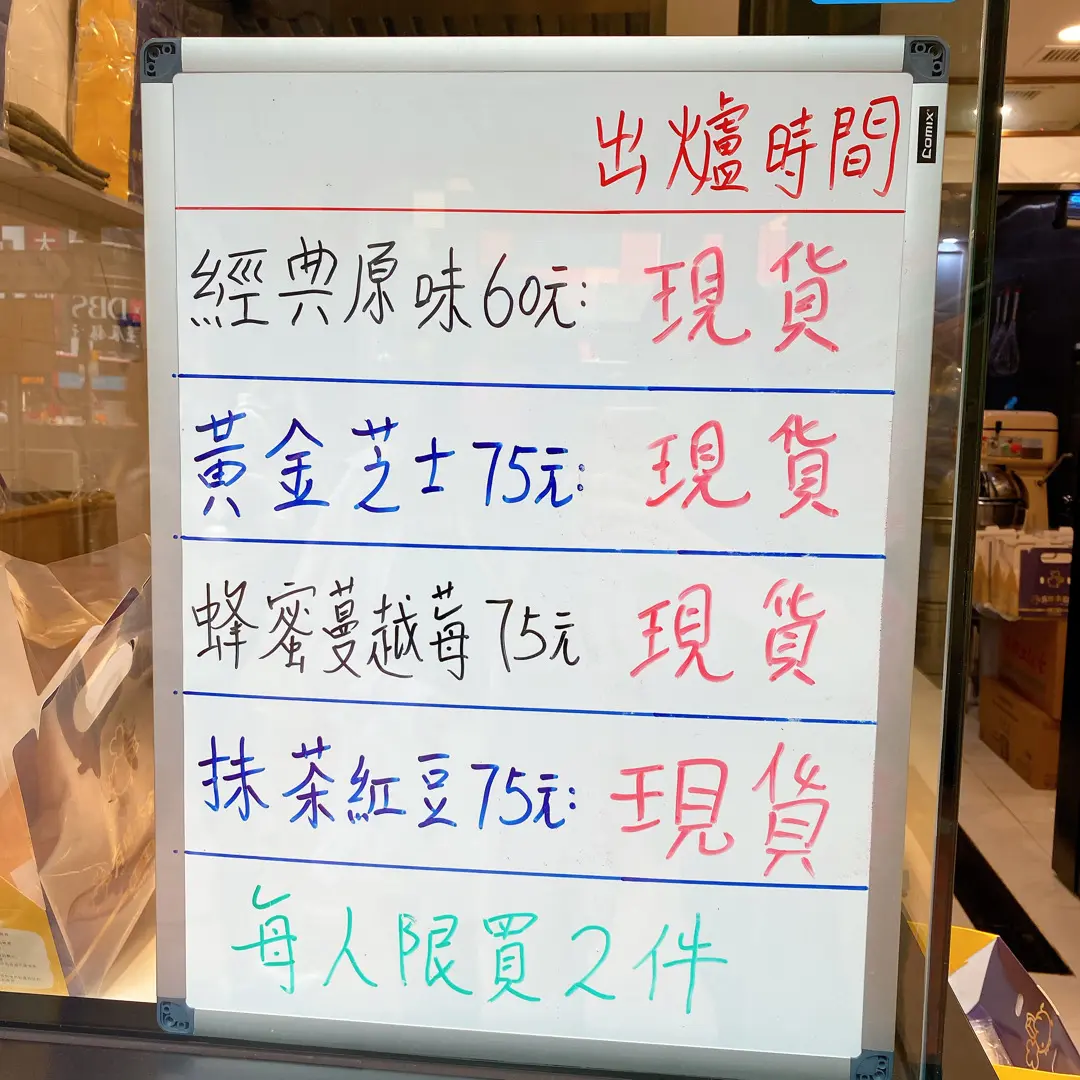 出爐時間
COMIX
經典原味60元: 現貨
黃金芝士75元: 現貨
蜂蜜蔓越莓75元 現貨
抹茶紅豆75元: 現貨
每人限買2件
DBS